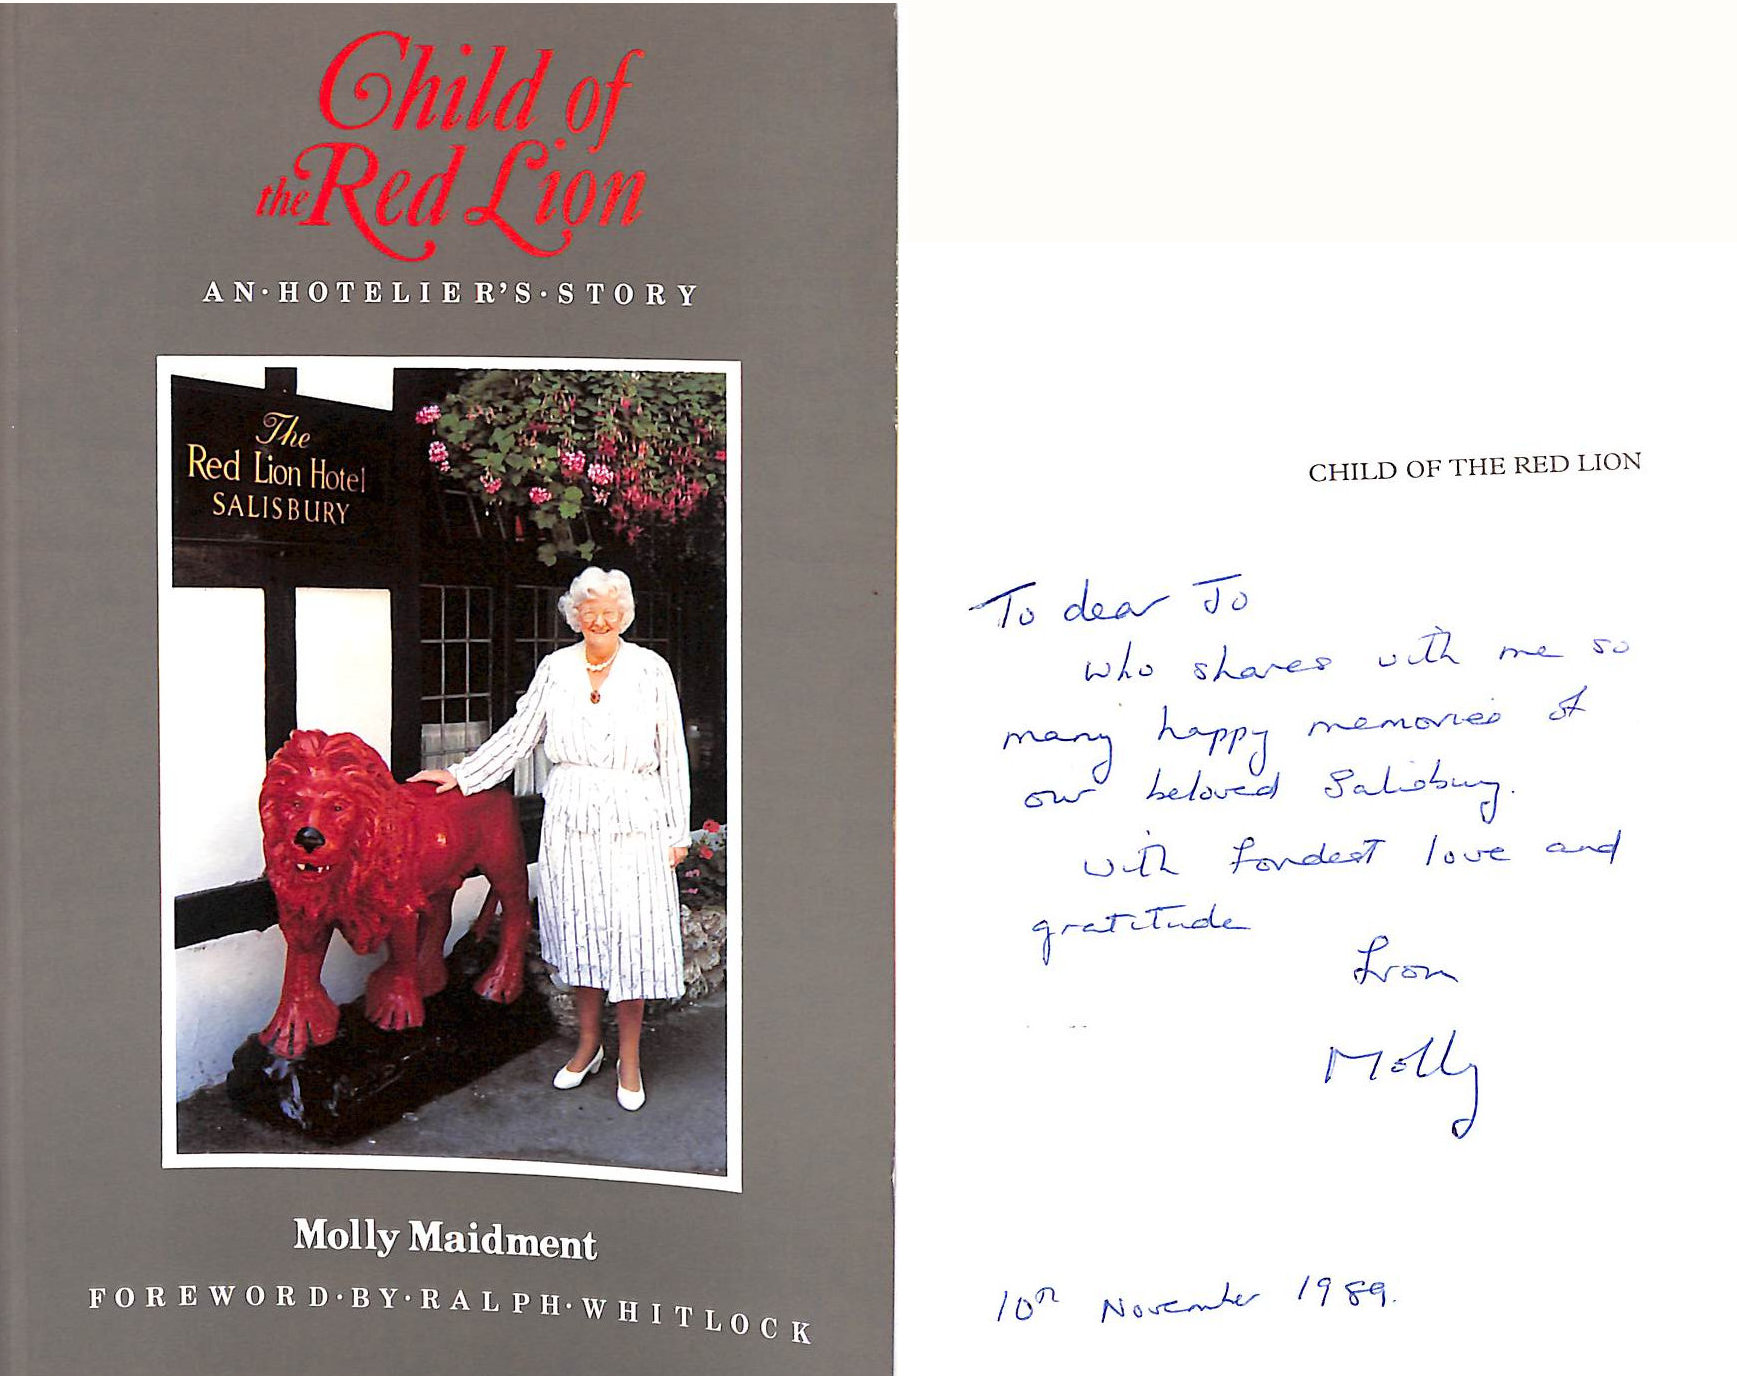 Child of
the Red Lion
AN·HOTELIER'S·STORY
The
Red Lion Hotel
SALISBURY
Molly Maidment
FOREWORD·BY·RALPH·WHITLOCK
CHILD OF THE RED LION
To dear Jo
who shares with me so
many happy memories of
our beloved Salisbury.
with fondest love and
gratitude
from
Molly
10th November 1989.